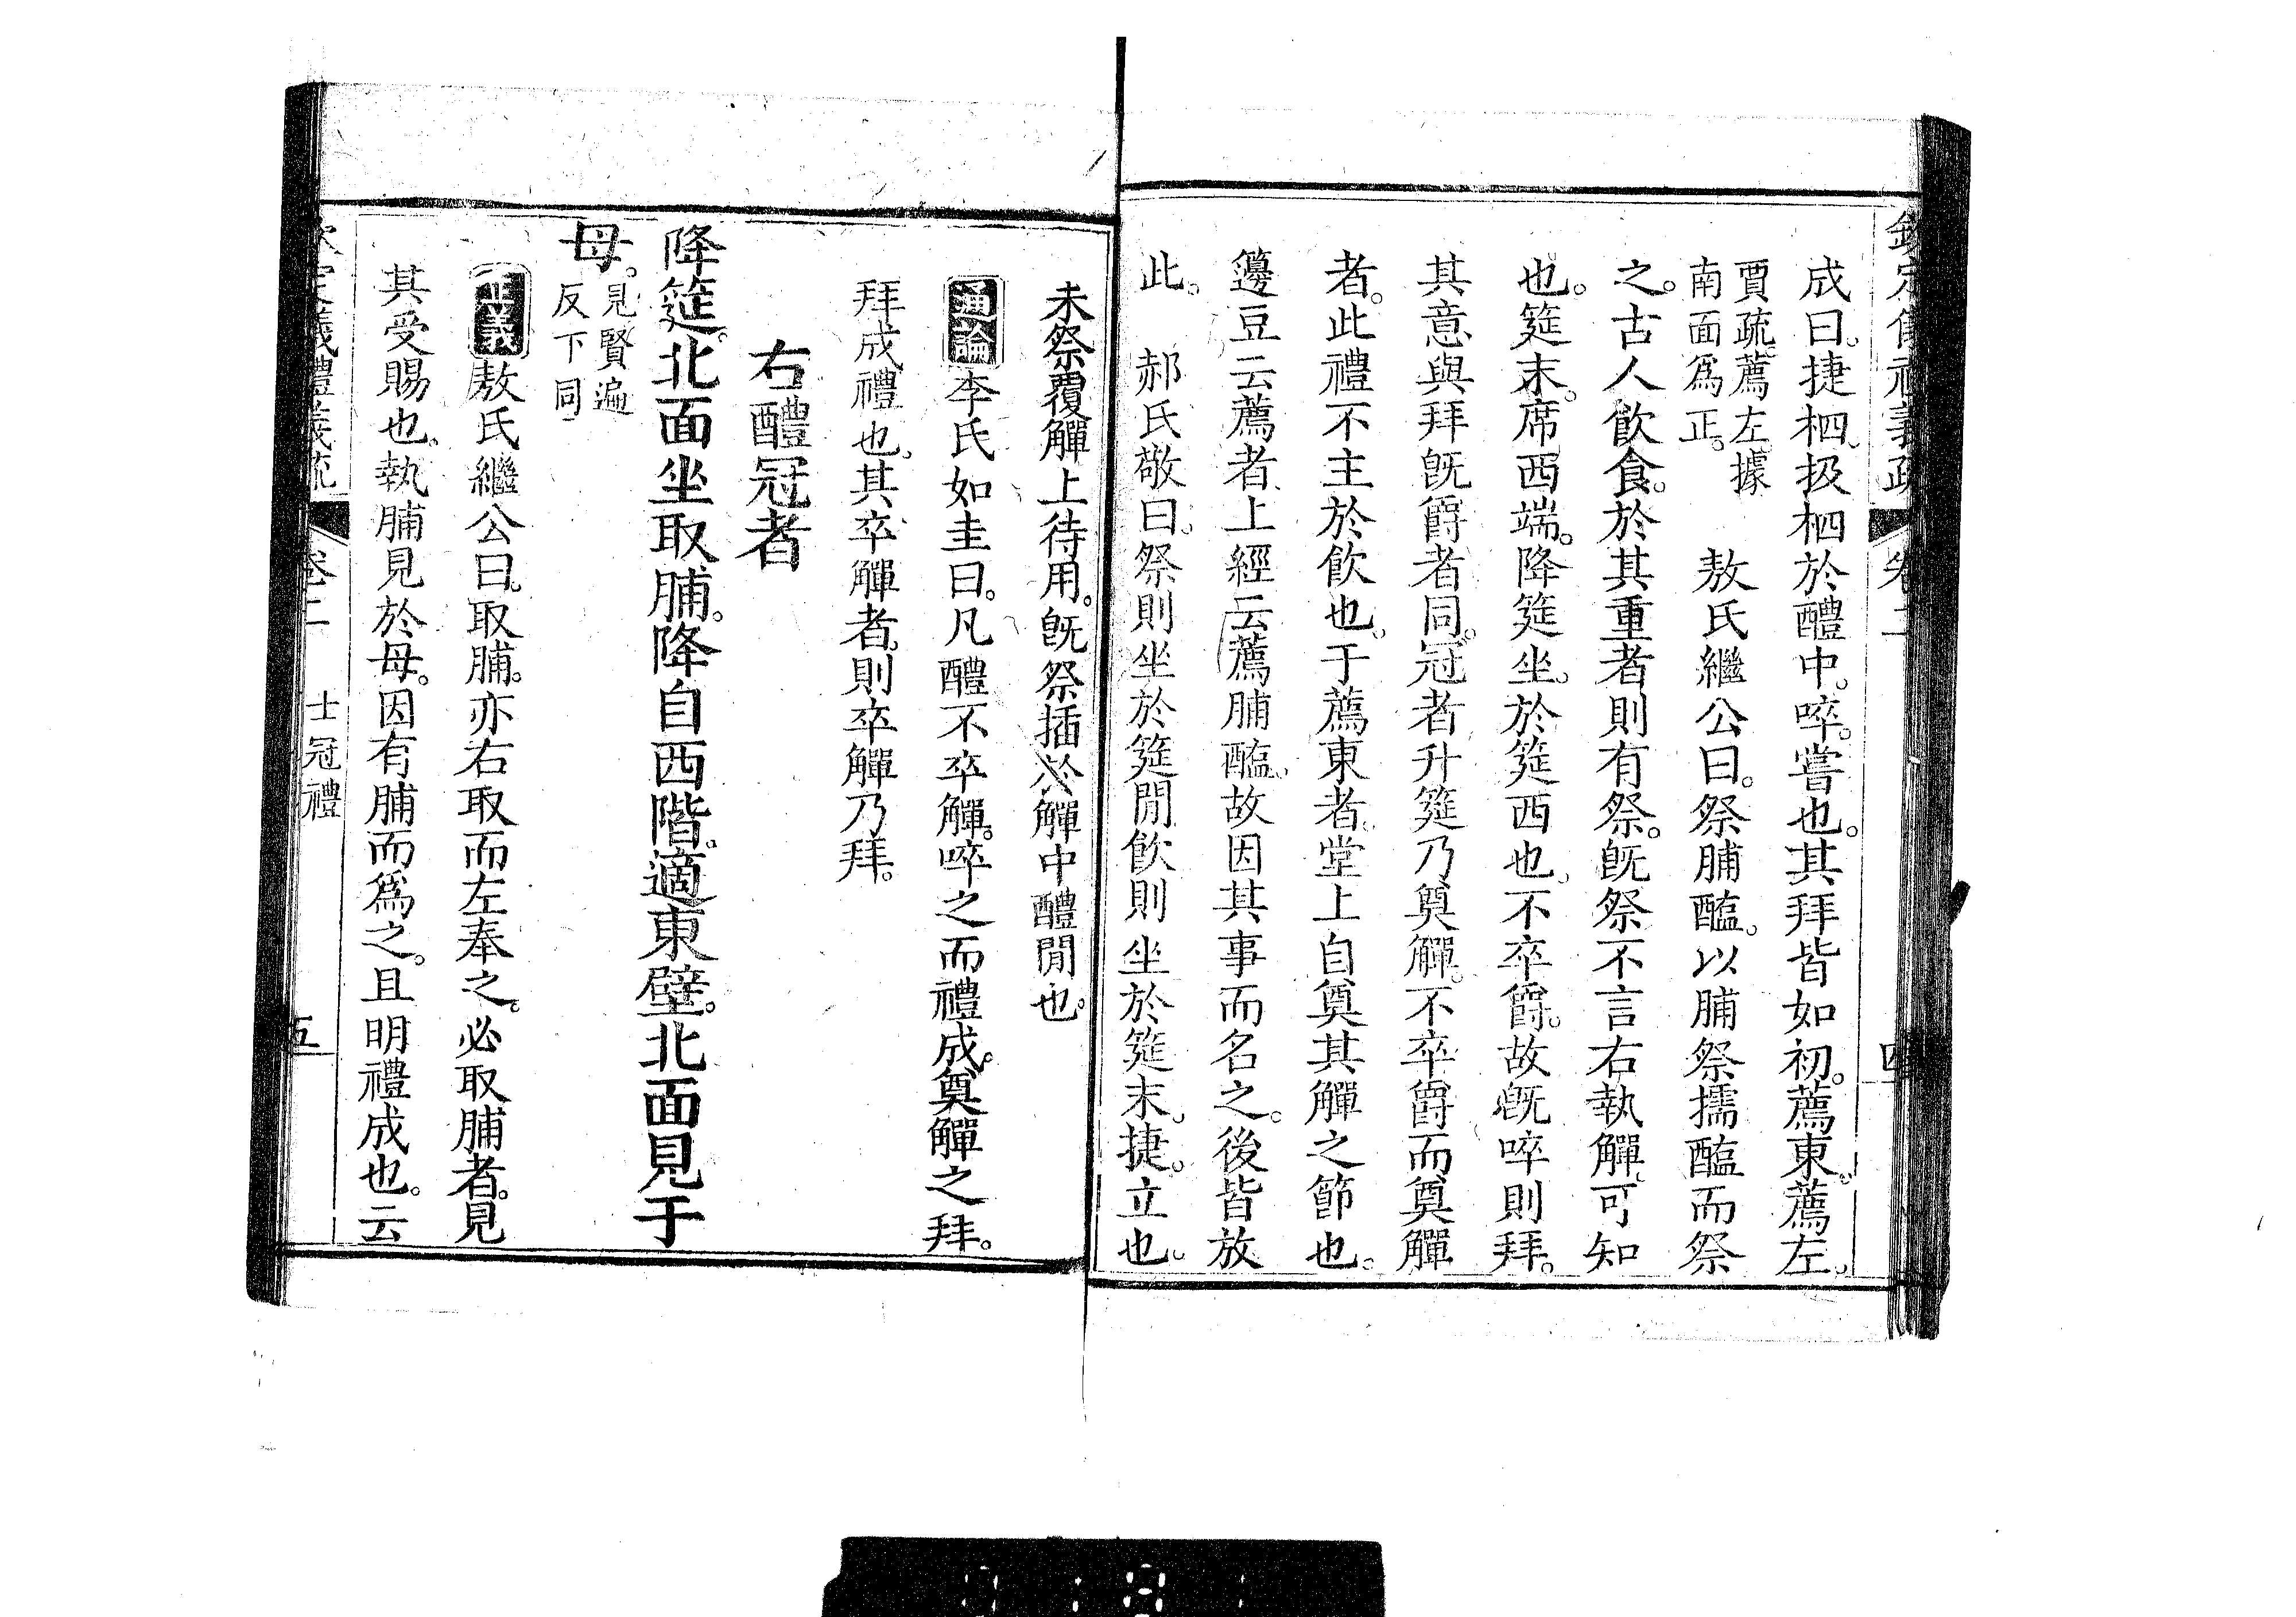 欽定儀禮義疏 卷二 四
成曰。捷柶。扱柶於醴中。啐。嘗也。其拜皆如初。薦東。薦左。
賈疏。薦左。據
南面爲正。
敖氏繼公曰。祭脯醢。以脯祭擩醢而祭
之。古人飲食。於其重者則有祭。旣祭不言右執觶。可知
也。筵末。席西端。降筵坐。於筵西也。不卒爵。故旣啐則拜。
其意與拜旣爵者同。冠者升筵乃奠觶。不卒爵而奠觶
者。此禮不主於飲也。于薦東者。堂上自奠其觶之節也。
籩豆云薦者。上經云薦脯醢。故因其事而名之。後皆放
此。 郝氏敬曰。祭則坐於筵閒。飲則坐於筵末。捷。立也。
未祭覆觶上待用。旣祭插於觶中醴閒也。
通論 李氏如圭曰。凡醴不卒觶。啐之而禮成。奠觶之拜。
拜成禮也。其卒觶者。則卒觶乃拜。
右醴冠者
降筵。北面坐取脯。降自西階。適東壁。北面見于
母。
見賢遍
反下同
正義 敖氏繼公曰。取脯。亦右取而左奉之。必取脯者。見
其受賜也。執脯見於母。因有脯而爲之。且明禮成也。云
欽定儀禮義疏 卷二 士冠禮 五